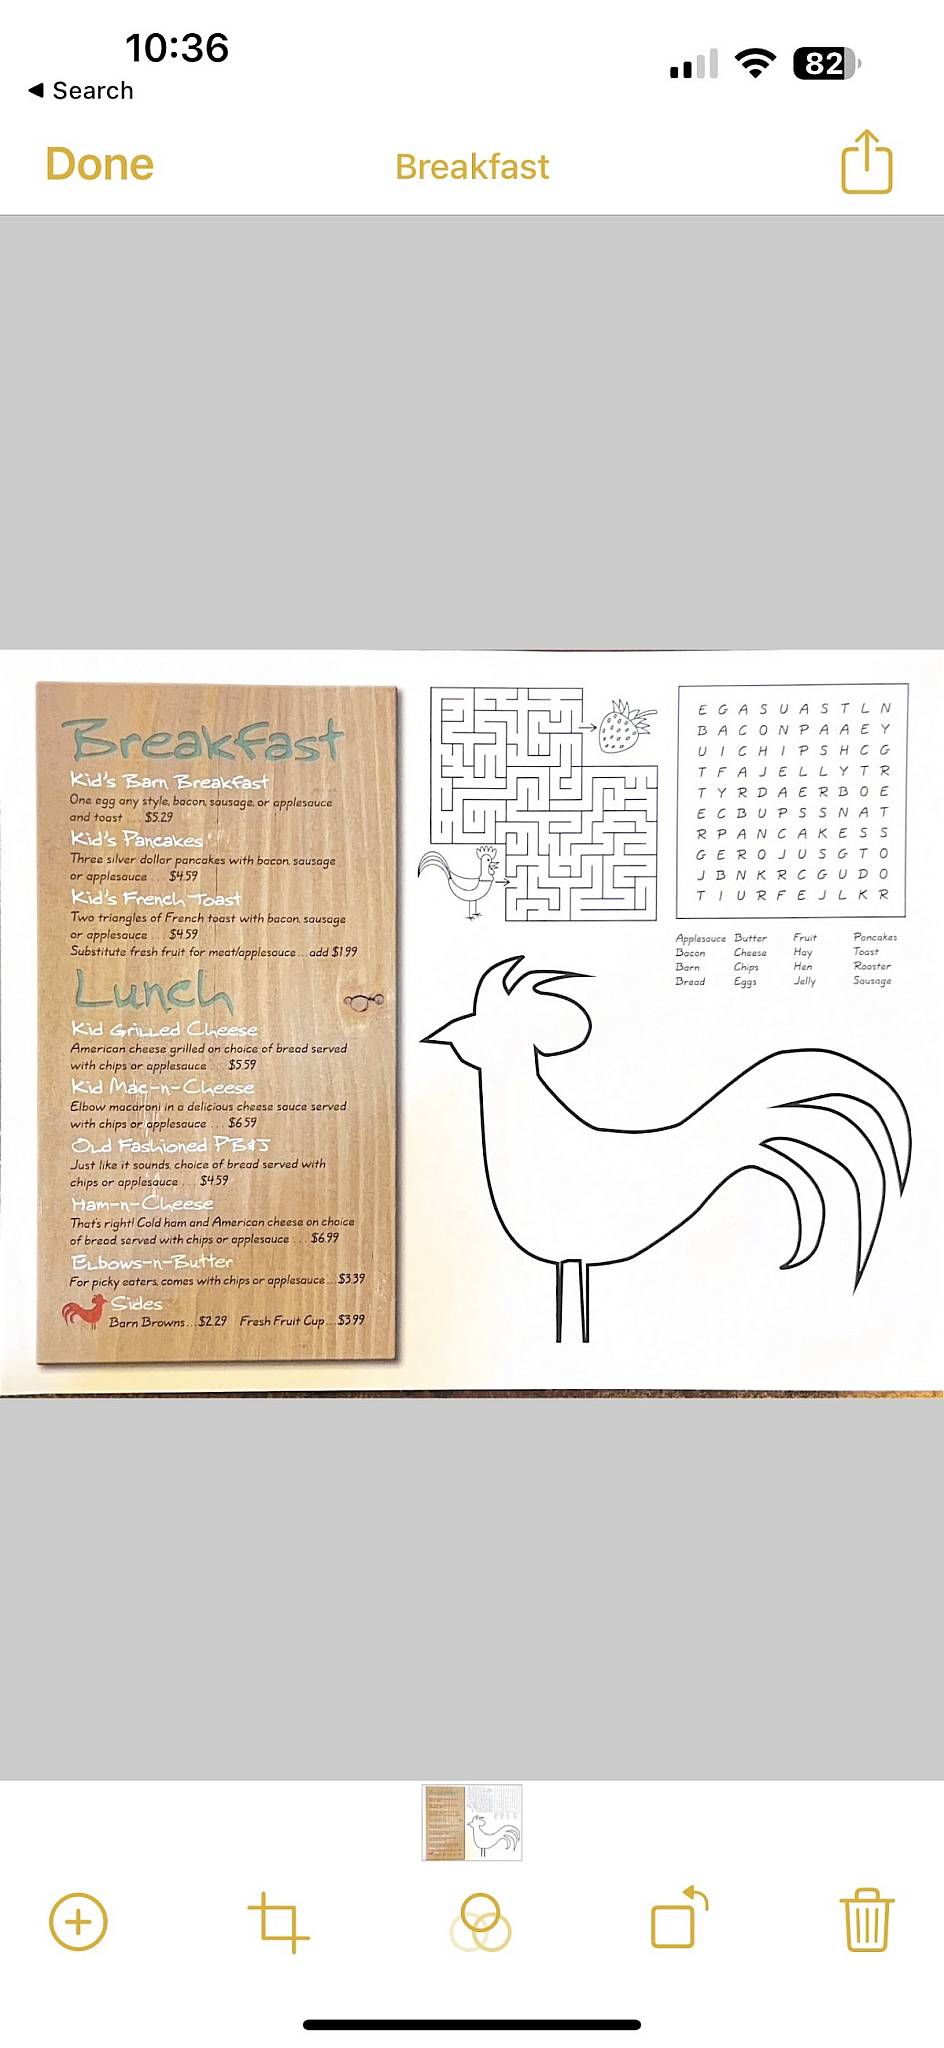 10:36
82
◀ Search
Done
Breakfast
Breakfast
Kid's Barn Breakfast
One egg any style, bacon, sausage, or applesauce
and toast ... $5.29
Kid's Pancakes
Three silver dollar pancakes with bacon, sausage
or applesauce ... $4.59
Kid's French Toast
Two triangles of French toast with bacon, sausage
or applesauce ... $4.59
Substitute fresh fruit for meat/applesauce ... add $1.99
Lunch
Kid Grilled Cheese
American cheese grilled on choice of bread served
with chips or applesauce ... $5.59
Kid Mac-n-Cheese
Elbow macaroni in a delicious cheese sauce served
with chips or applesauce ... $6.59
Old Fashioned PB&J
Just like it sounds, choice of bread served with
chips or applesauce ... $4.59
Ham-n-Cheese
That's right! Cold ham and American cheese on choice
of bread, served with chips or applesauce ... $6.99
Elbows-n-Butter
For picky eaters, comes with chips or applesauce ... $3.39
Sides
Barn Browns ... $2.29 Fresh Fruit Cup ... $3.99
E G A S U A S T L N
B A C O N P A A E Y
U I C H I P S H C G
T F A J E L L Y T R
T Y R D A E R B O E
E C B U P S S N A T
R P A N C A K E S S
G E R O J U S G T O
J B N K R C G U D O
T I U R F E J L K R
Applesauce Butter Fruit Pancakes
Bacon Cheese Hay Toast
Barn Chips Hen Rooster
Bread Eggs Jelly Sausage